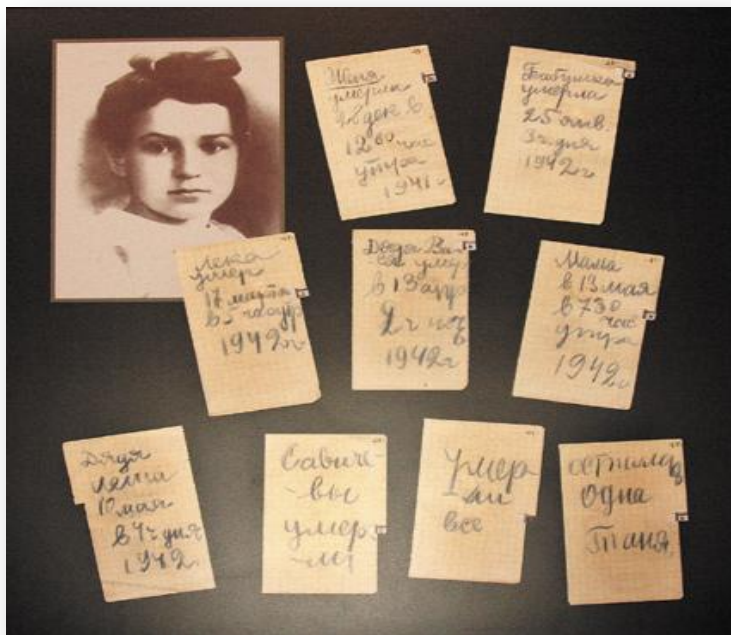 Женя
умерла
28 дек в
12 00 час
утра
1941 г
Бабушка
умерла
25 янв.
3 ч дня
1942 г
Лека
умер
17 марта
в 5 час утр
1942 г
Дядя Ва-
ся умер
в 13 апр
2 ч ноч
1942 г
Мама
в 13 мая
в 7 30
час
утра
1942 г
Дядя
Леша
10 мая
в 4 ч дня
1942
Савиче-
-вы
умер-
-ли
Умер
-ли
все
Осталась
одна
Таня.